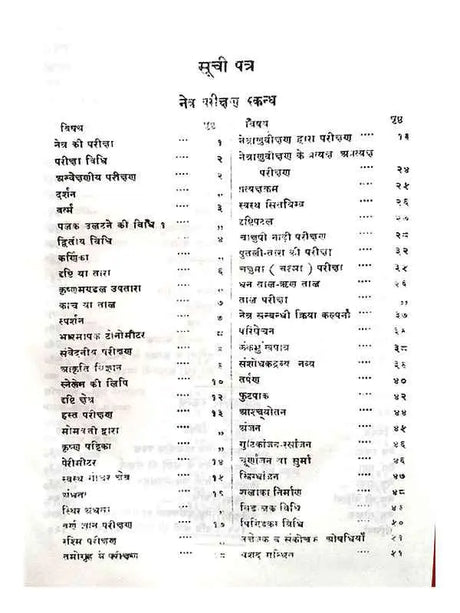 सूची पत्र
नेत्र परीक्षण स्कन्ध
विषय पृष्ठ
नेत्र की परीक्षा १
परीक्षा विधि २
अन्वेक्षणीय परीक्षण २
दर्शन ,,
वर्त्म ३
पलक उलटने की विधि १ ,,
द्वितीय विधि ४
कर्णिका ,,
दृष्टि या तारा ६
कृष्णमण्डल उपतारा ,,
काच या ताल ७
स्पर्शन ,,
भारमापक टोनोमीटर
संवेदनीय परीक्षण
आकृति विज्ञान
स्नेलेन की लिपि १०
दृष्टि क्षेत्र १२
हस्त परीक्षण १३
मोमबत्ती द्वारा ,,
कृष्ण पट्टिका ,,
पेरीमीटर १४
स्वस्थ गोचर क्षेत्र १५
अंधता १६
स्थिर अंधता ,,
वर्ण ज्ञान परीक्षण १७
रश्मि परीक्षण ,,
तमोगृह में परीक्षण
विषय पृष्ठ
नेत्राणुवीक्षण द्वारा परीक्षण १३
नेत्राणुवीक्षण के प्रत्यक्ष अप्रत्यक्ष
परीक्षण २४
प्रत्यक्षक्रम २५
स्वस्थ सितबिम्ब २६
दृष्टिपटल ,,
चाक्षुषी नाड़ी परीक्षण ३२
पुतली-तारा की परीक्षा ३२
चश्मा ( चक्ष्मा ) परीक्षा ३५
धन ताल-ऋण ताल ३६
ताल परीक्षा ,,
नेत्र सम्बन्धी क्रिया कल्पनौ ३७
परिषेचन
३८
संशोधकद्रव्य नव्य
तर्पण ४०
पुटपाक ४२
आश्च्योतन ४४
अंजन ४५
गुटिकांजन-रसांजन ४६
चूर्णांजन या सुर्मा ४६
स्निग्धांजन ४७
शलाका निर्माण ४८
विडालक विधि ४९
पिण्डिका विधि ५०
उत्तेजक व संकोचक औषधियाँ ५१
५१